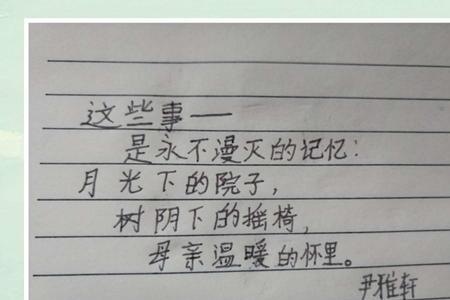 这些事——
是永不漫灭的记忆：
月光下的院子，
树阴下的摇椅，
母亲温暖的怀里。
尹雅轩